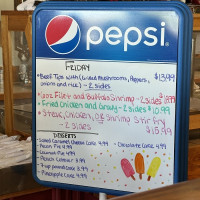 pepsi
FRIDAY
Beef Tips with (Grilled Mushrooms, Peppers,
onions and rice) - 2 sides $13.99
Filet and Buffalo Shrimp - 2 sides
Fried Chicken and Gravy - 2 sides $10.99
Steak, Chicken, OR Shrimp Stir fry
- 2 sides $15.99
DESSERTS
Salted Caramel Cheese Cake 4.99
Pecan Pie 4.99
Chocolate Cake 4.99
Coconut Pie 4.99
Peach Cobbler 3.99
Pineapple Cake 4.99